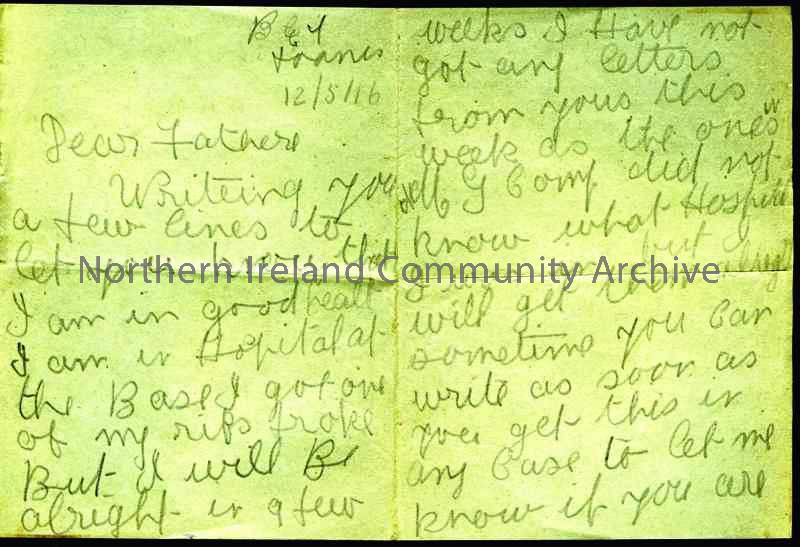 B E F
France
12/5/16
Dear Father
Writeing you
a few lines to
let you know that
I am in good healt
I am in Hospital at
the Base I got one
of my ribs broke
But it will Be
alright in a few
weeks I Have not
got any letters
from yous this
week as the ones
G Comp did not
know what Hospital
I was in but I
will get them alright
sometime you can
write as soon as
you get this in
any case to let me
know if you are
Northern Ireland Community Archive